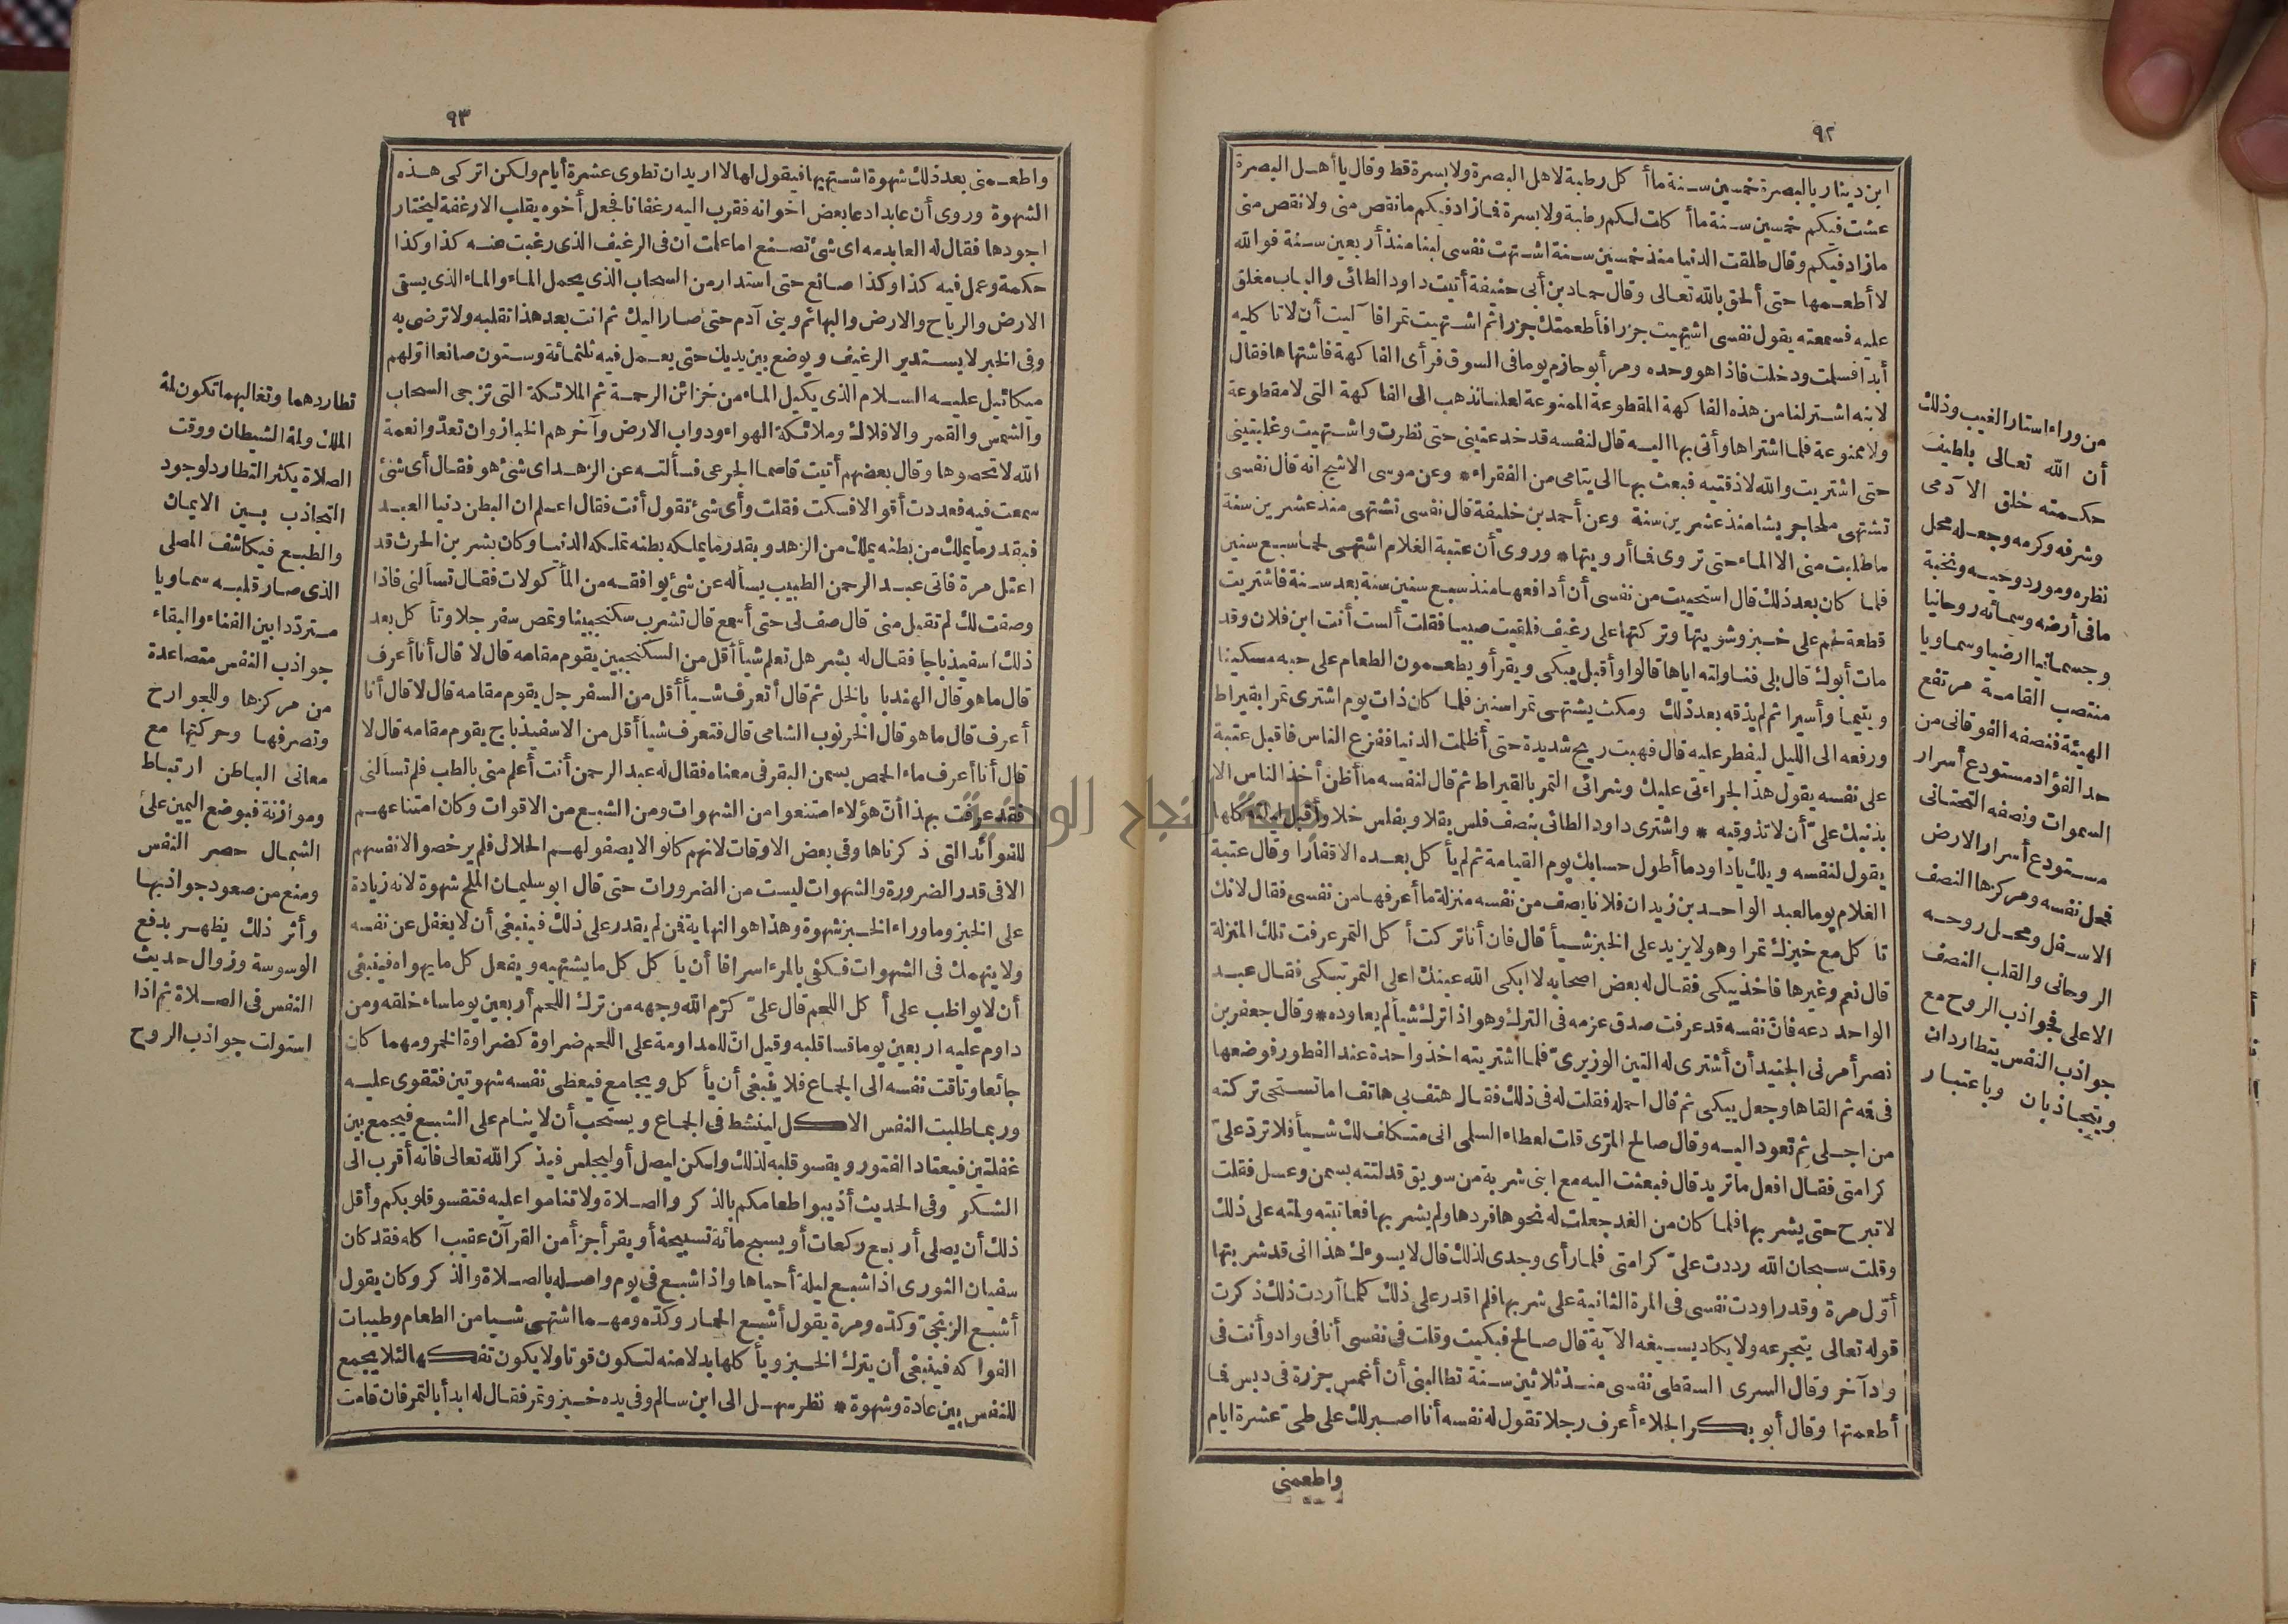 ٩٢
ابن دينار بالبصرة خمسين سنة ما أكل رطبة لاهل البصرة ولا بسرة قط وقال يا أهل البصرة
عشت فيكم خمسين سنة ما أكلت لكم رطبة ولا بسرة فما زاد فيكم ما نقص منى ولا نقص منى
ما زاد فيكم وقال طلقت الدنيا منذ خمسين سنة اشتهت نفسى لبنا منذ أربعين سنة فوالله
لا أطعمها حتى ألحق بالله تعالى وقال حماد بن أبى حنيفة أتيت داود الطائى والباب مغلق
عليه فسمعته يقول نفسى اشتهيت جزرا فأطعمتك جزرا ثم اشتهيت تمرا فآ ليت أن لا تأ كليه
أبدا فسلمت ودخلت فاذا هو وحده ومر أبو حازم يوما فى السوق فرأى الفاكهة فاشتهاها فقال
لابنه اشتر لنا من هذه الفاكهة المقطوعة الممنوعة لعلنا نذهب الى الفاكهة التى لا مقطوعة
ولا ممنوعة فلما اشتراها وأتى بها اليه قال لنفسه قد خدعتينى حتى نظرت واشتهيت وغلبتينى
حتى اشتريت والله لا ذقتيه فبعث بها الى يتامى من الفقراء * وعن موسى الاشج انه قال نفسى
تشتهى ملحا جريشا منذ عشرين سنة وعن أحمد بن خليفة قال نفسى تشتهى منذ عشرين سنة
ما طلبت منى الا الماء حتى تروى فما أرويتها * وروى أن عتبة الغلام اشتهى لحما سبع سنين
فلما كان بعد ذلك قال استحييت من نفسى أن أدافعها منذ سبع سنين سنة بعد سنة فاشتريت
قطعة لحم على خبز وشويتها وتركتها على رغيف فلقيت صبيا فقلت ألست أنت ابن فلان وقد
مات أبوك قال بلى فناولته اياها قالوا وأقبل يبكى ويقرأ ويطعمون الطعام على حبه مسكينا
ويتيما وأسيرا ثم لم يذقه بعد ذلك ومكث يشتهى تمرا سنين فلما كان ذات يوم اشترى تمرا بقيراط
ورفعه الى الليل ليفطر عليه قال فهبت ريح شديدة حتى أظلمت الدنيا ففزع الناس فاقبل عتبة
على نفسه يقول هذا لجراءتى عليك وشرائى التمر بالقيراط ثم قال لنفسه ما أظن أخذ الناس الا
بذنبك علىّ أن لا تذوقيه * واشترى داود الطائى بنصف فلس بقلا وبفلس خلا وأقبل ليلته كلها
يقول لنفسه ويلك يا داود ما أطول حسابك يوم القيامة ثم لم يأكل بعده الا قفارا وقال عتبة
الغلام يوما لعبد الواحد بن زيد ان فلانا يصف من نفسه منزلة ما أعرفها من نفسى فقال لانك
تأكل مع خبزك تمرا وهو لا يزيد على الخبز شيأ قال فان أنا تركت أكل التمر عرفت تلك المنزلة
قال نعم وغيرها فاخذ يبكى فقال له بعض اصحابه لا ابكى الله عينك اعلى التمر تبكى فقال عبد
الواحد دعه فان نفسه قد عرفت صدق عزمه فى الترك وهو اذا ترك شيأ لم يعاوده * وقال جعفر بن
نصر أمرنى الجنيد أن أشترى له التين الوزيرى فلما اشتريته اخذ واحدة عند الفطور فوضعها
فى فه ثم القاها وجعل يبكى ثم قال احمله فقلت له فى ذلك فقال هتف بى هاتف اما تستحى تركته
من اجلى ثم تعود اليه وقال صالح المرى قلت لعطاء السلمى انى متكلف لك شيأ فلا ترد علىّ
كرامتى فقال افعل ما تريد قال فبعثت اليه مع ابنى شربة من سويق قد لتته بسمن وعسل فقلت
لا تبرح حتى يشربها فلما كان من الغد جعلت له نحوها فردها ولم يشربها فعاتبته ولمته على ذلك
وقلت سبحان الله رددت علىّ كرامتى فلما رأى وجدى لذلك قال لا يسوءك هذا انى قد شربتها
أوّل مرة وقد راودت نفسى فى المرة الثانية على شربها فلم اقدر على ذلك كلما أردت ذلك ذكرت
قوله تعالى يتجرعه ولا يكاد يسيغه الآية قال صالح فبكيت وقلت فى نفسى أنا فى واد وأنت فى
واد آخر وقال السرى السقطى نفسى منذ ثلاثين سنة تطالبنى أن أغمس جزرة فى دبس فما
أطعمتها وقال أبو بكر الجلاء أعرف رجلا تقول له نفسه أنا اصبر لك على طىّ عشرة ايام
واطعمنى
من وراء استار الغيب وذلك
أن الله تعالى بلطيف
حكمته خلق الآدمى
وشرفه وكرمه وجعله محل
نظره ومورد وحيه ونخبة
ما فى أرضه وسمائه روحانيا
وجسمانيا ارضيا وسماويا
منتصب القامة مرتفع
الهيئة فنصفه الفوقانى من
حد الفؤاد مستودع أسرار
السموات ونصفه التحتانى
مستودع أسرار الارض
فحل نفسه ومركزها النصف
الاسفل ومحل روحه
الروحانى والقلب النصف
الاعلى فجواذب الروح مع
جواذب النفس يتطاردان
ويتجاذبان وباعتبار
٩٣
واطعمنى بعد ذلك شهوة اشتهيها فيقول لها لا اريد ان تطوى عشرة أيام ولكن اتركى هذه
الشهوة وروى أن عابدا دعا بعض اخوانه فقرب اليه رغفانا فجعل أخوه يقلب الارغفة ليختار
اجودها فقال له العابد مه اى شئ تصنع اما علمت ان فى الرغيف الذى رغبت عنه كذا وكذا
حكمة وعمل فيه كذا وكذا صانع حتى استدار من السحاب الذى يحمل الماء والماء الذى يسقى
الارض والرياح والارض والبهائم وبنى آدم حتى صار اليك ثم انت بعد هذا تقلبه ولا ترضى به
وفى الخبر لا يستدير الرغيف ويوضع بين يديك حتى يعمل فيه ثلثمائة وستون صانعا اولهم
ميكائيل عليه السلام الذى يكيل الماء من خزائن الرحمة ثم الملائكة التى تزجى السحاب
والشمس والقمر والافلاك وملائكة الهواء ودواب الارض وآخرهم الخباز وان تعدّوا نعمة
الله لا تحصوها وقال بعضهم أتيت قاسما الجرعى فسألته عن الزهد اى شئ هو فقال أى شئ
سمعت فيه فعددت أقوالا فسكت فقلت وأى شئ تقول أنت فقال اعلم ان البطن دنيا العبد
فبقدر ما يملك من بطنه يملك من الزهد وبقدر ما يملكه بطنه تملكه الدنيا وكان بشر بن الحرث قد
اعتل مرة فاتى عبد الرحمن الطبيب يسأله عن شئ يوافقه من المأكولات فقال تسألنى فاذا
وصفت لك لم تقبل منى قال صف لى حتى أسمع قال تشرب سكنجبينا وتمص سفرجلا وتأكل بعد
ذلك اسفيذباجا فقال له بشر هل تعلم شيأ أقل من السكنجبين يقوم مقامه قال لا قال أنا أعرف
قال ما هو قال الهندبا بالخل ثم قال أتعرف شيأ أقل من السفرجل يقوم مقامه قال لا قال أنا
أعرف قال ما هو قال الخرنوب الشامى قال فتعرف شيأ أقل من الاسفيذباج يقوم مقامه قال لا
قال أنا أعرف ماء الحمص بسمن البقر فى معناه فقال له عبد الرحمن أنت أعلم منى بالطب فلم تسألنى
فقد عرفت بهذا أن هؤلاء امتنعوا من الشهوات ومن الشبع من الاقوات وكان امتناعهم
للفوائد التى ذكرناها وفى بعض الاوقات لانهم كانوا لا يصفو لهم الحلال فلم يرخصوا لانفسهم
الا فى قدر الضرورة والشهوات ليست من الضرورات حتى قال ابو سليمان الملح شهوة لانه زيادة
على الخبز وما وراء الخبز شهوة وهذا هو النهاية فمن لم يقدر على ذلك فينبغى أن لا يغفل عن نفسه
ولا ينهمك فى الشهوات فكفى بالمرء اسرافا أن يأكل كل ما يشتهيه ويفعل كل ما يهواه فينبغى
أن لا يواظب على أكل اللحم قال علىّ كرّم الله وجهه من ترك اللحم أربعين يوما ساء خلقه ومن
داوم عليه اربعين يوما قسا قلبه وقيل انّ للمداومة على اللحم ضراوة كضراوة الخمر ومهما كان
جائعا وتاقت نفسه الى الجماع فلا ينبغى أن يأكل ويجامع فيعطى نفسه شهوتين فتقوى عليه
وربما طلبت النفس الاكل لينشط فى الجماع ويستحب أن لا ينام على الشبع فيجمع بين
غفلتين فيعتاد الفتور ويقسو قلبه لذلك ولكن ليصل أو ليجلس فيذكر الله تعالى فانه أقرب الى
الشكر وفى الحديث أذيبوا طعامكم بالذكر والصلاة ولا تناموا عليه فتقسو قلوبكم وأقل
ذلك أن يصلى أربع ركعات أو يسبح مائة تسبيحة أو يقرأ جزأ من القرآن عقيب اكله فقد كان
سفيان الثورى اذا شبع ليلة أحياها واذا شبع فى يوم واصله بالصلاة والذكر وكان يقول
أشبع الزنجىّ وكدّه ومرة يقول أشبع الحمار وكدّه ومهما اشتهى شيا من الطعام وطيبات
الفواكه فينبغى أن يترك الخبز ويأكلها بدلا منه لتكون قوتا ولا يكون تفكها لئلا يجمع
للنفس بين عادة وشهوة * نظر سهل الى ابن سالم وفى يده خبز وتمر فقال له ابدأ بالتمر فان قامت
تطاردهما وتغالبهما تكون لمة
الملك ولمة الشيطان ووقت
الصلاة يكثر التطارد لوجود
التجاذب بين الايمان
والطبع فيكاشف المصلى
الذى صار قلبه سماويا
متردّدا بين الفناء والبقاء
جواذب النفس متصاعدة
من مركزها وللجوارح
وتصرفها وحركتها مع
معانى الباطن ارتباط
وموازنة فبوضع اليمين على
الشمال حصر النفس
ومنع من صعود جواذبها
وأثر ذلك يظهر بدفع
الوسوسة وزوال حديث
النفس فى الصلاة ثم اذا
استولت جواذب الروح
النجاح الوطنية